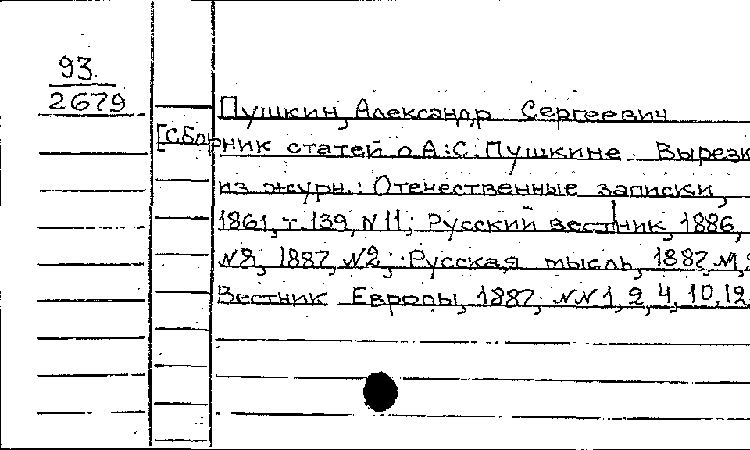 93
2679
Пушкин, Александр Сергеевич
[Сборник статей о А.С. Пушкине. Вырезк
из журн.: Отечественные записки,
1861, т. 139, N 11; Русский вестник, 1886,
1887, N2; Русская мысль, 1887,
Вестник Европы, 1887, NN 1, 2, 4, 10, 12